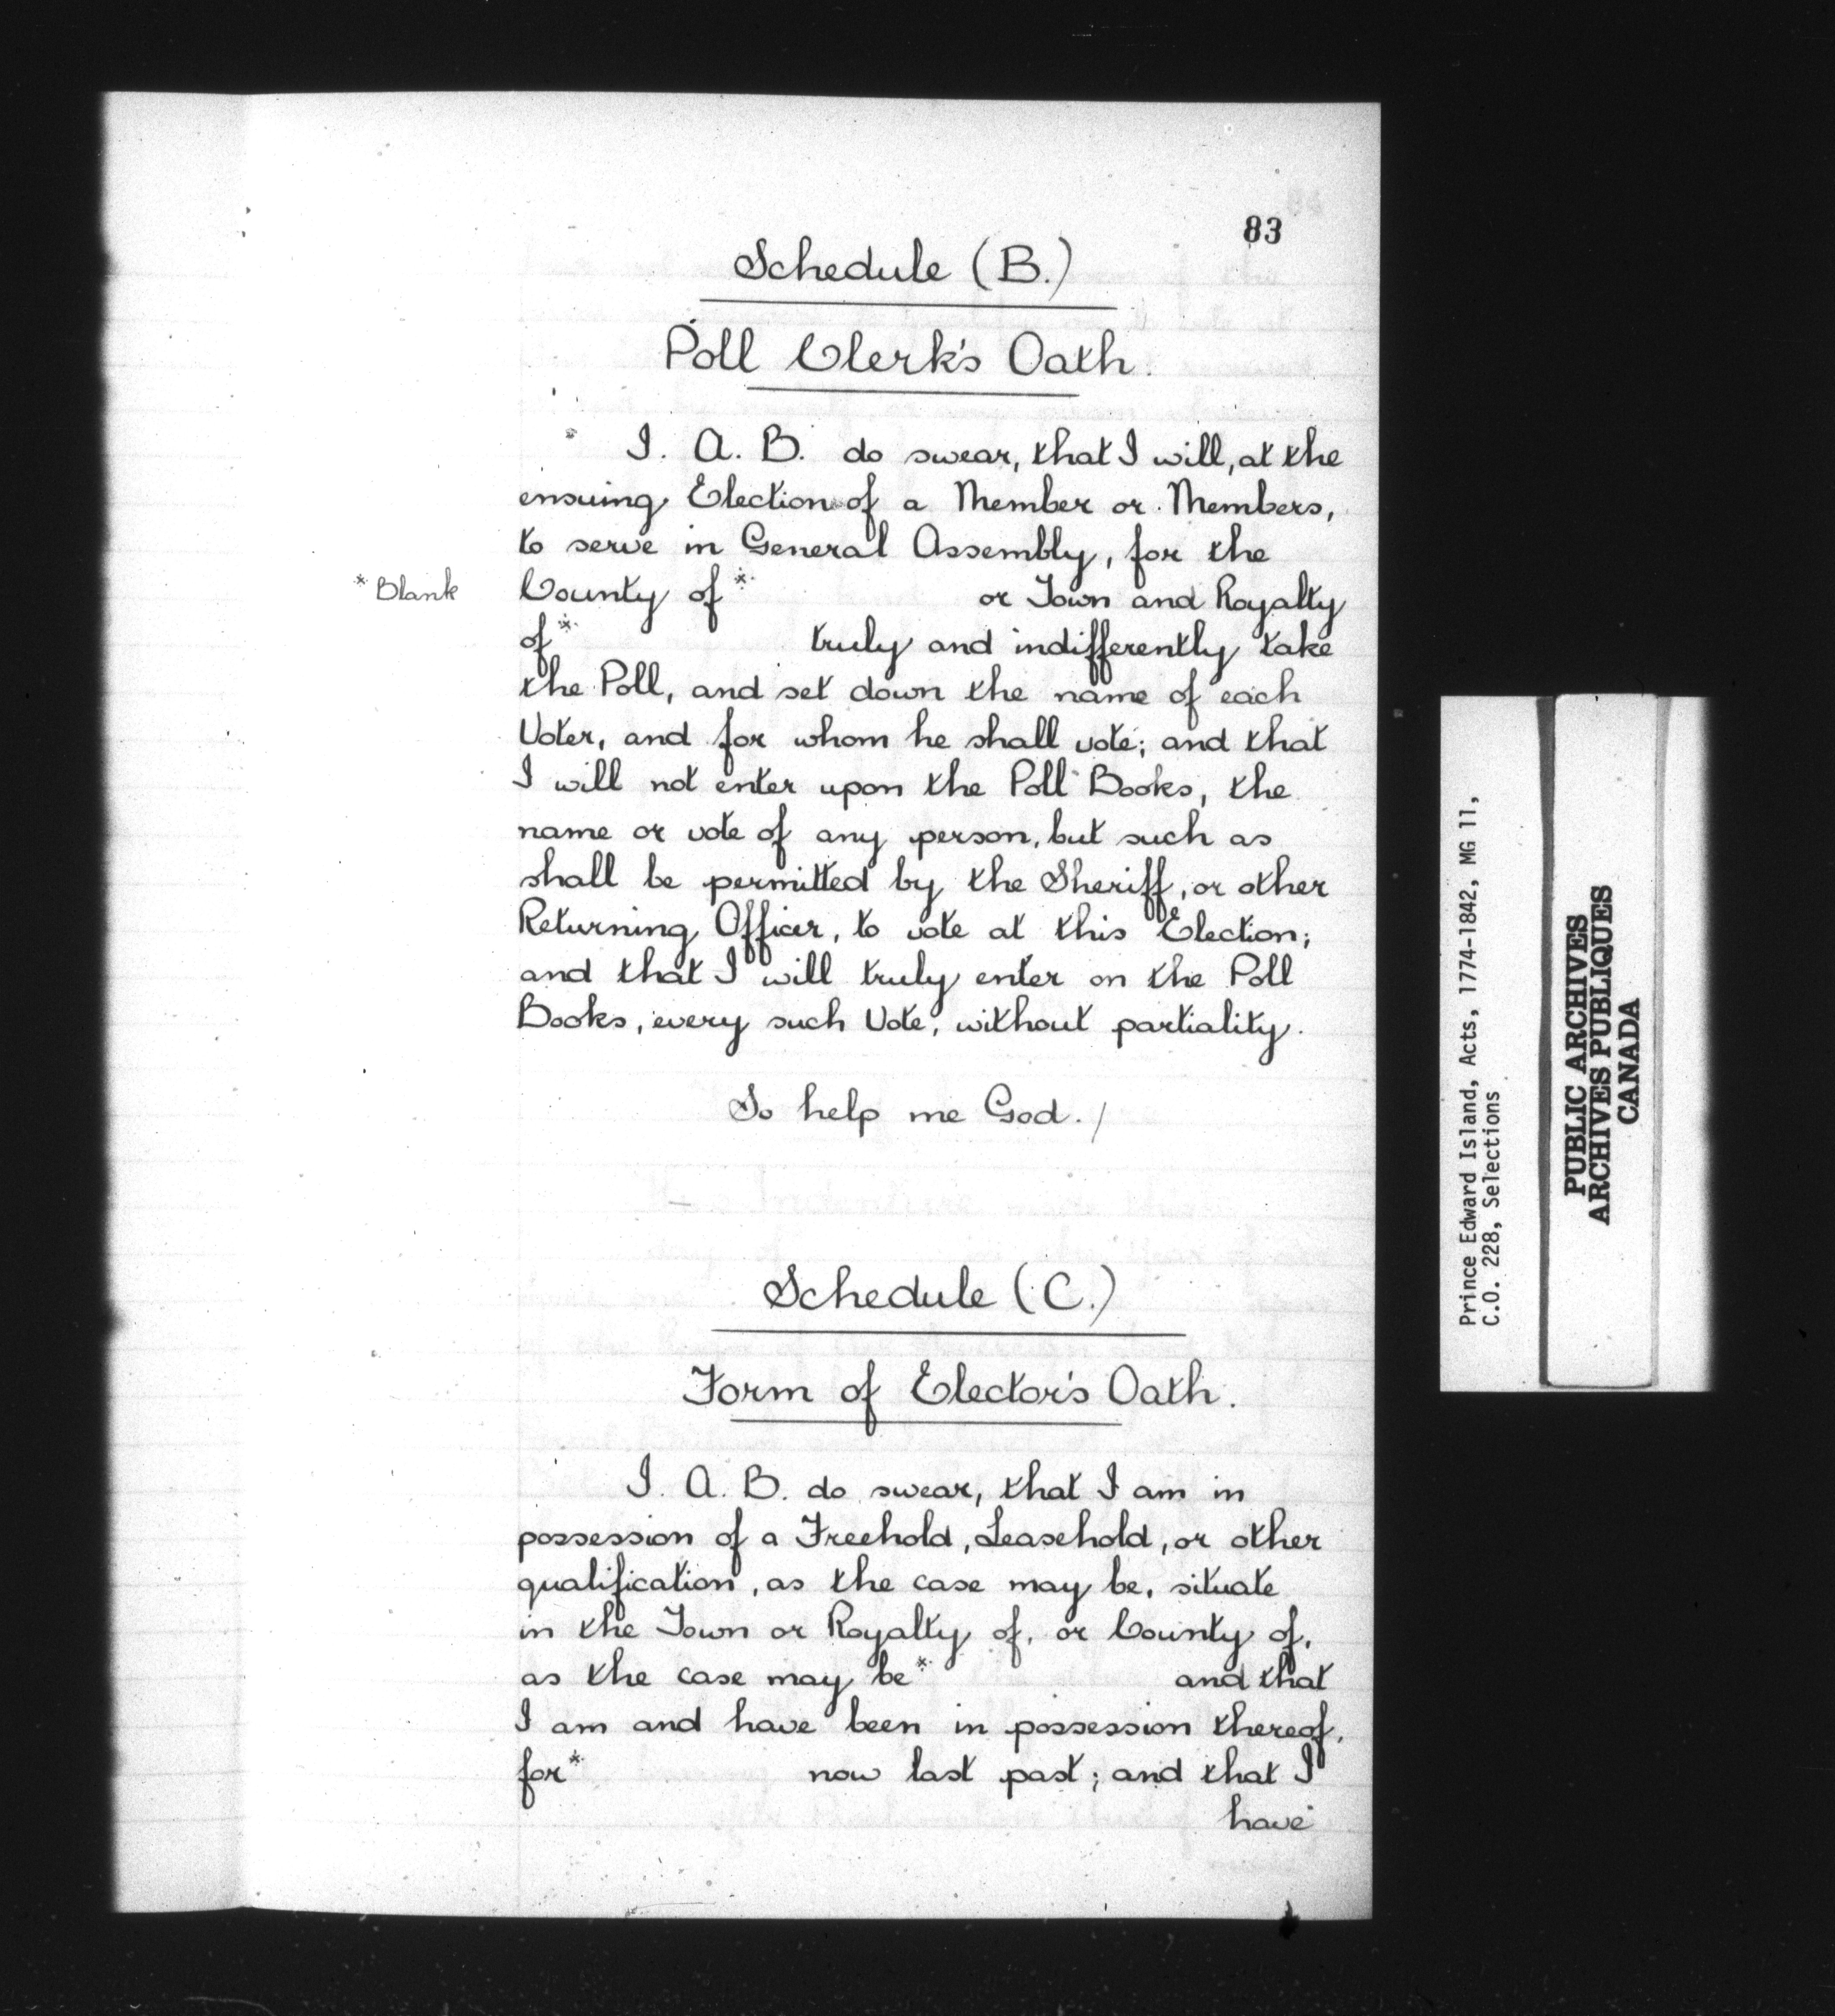 83
Schedule (B.)
Poll Clerk's Oath.
I. A. B. do swear, that I will, at the
ensuing Election of a Member or Members,
to serve in General Assembly, for the
* Blank
County of * or Town and Royalty
of * truly and indifferently take
the Poll, and set down the name of each
Voter, and for whom he shall vote; and that
I will not enter upon the Poll Books, the
name or vote of any person, but such as
shall be permitted by the Sheriff, or other
Returning Officer, to vote at this Election;
and that I will truly enter on the Poll
Books, every such Vote, without partiality.
So help me God./
Schedule (C.)
Form of Elector's Oath.
I. A. B. do swear, that I am in
possession of a Freehold, Leasehold, or other
qualification, as the case may be, situate
in the Town or Royalty of, or County of,
as the case may be * and that
I am and have been in possession thereof,
for * now last past; and that I
have
Prince Edward Island, Acts, 1774-1842, MG 11,
C.O. 228, Selections
PUBLIC ARCHIVES
ARCHIVES PUBLIQUES
CANADA